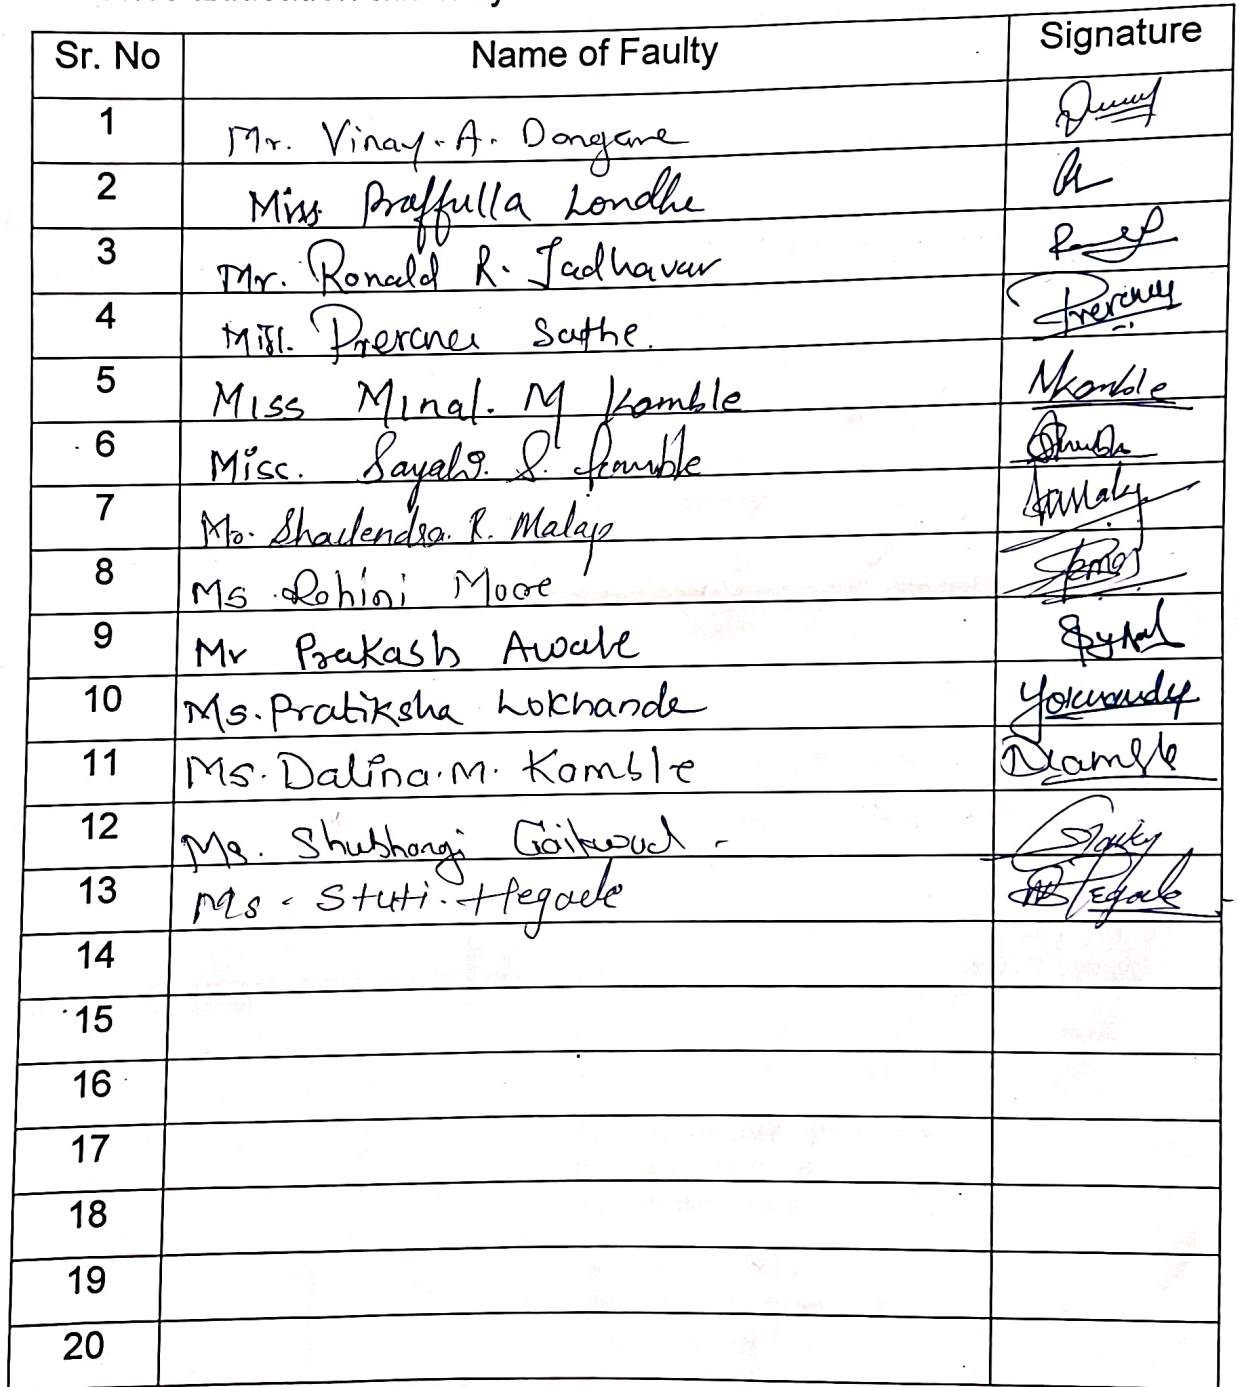 Sr. No Name of Faulty Signature
1 Mr. Vinay. A. Dongare
2 Miss Praffulla Londhe
3 Mr. Ronald R. Jadhavar
4 Miss. Prerana Sathe.
5 Miss Minal. M Kamble Mkamble
6 Misc. Sayali. S. Kamble
7 Mr. Shailendra. R. Malap
8 Ms. Rohini More
9 Mr Prakash Awale
10 Ms. Pratiksha Lokhande
11 Ms. Dalina. M. Kamble Dkamble
12 Ms. Shubhangi Gaikwad -
13 Ms. Stuti. Hegade
14
15
16
17
18
19
20